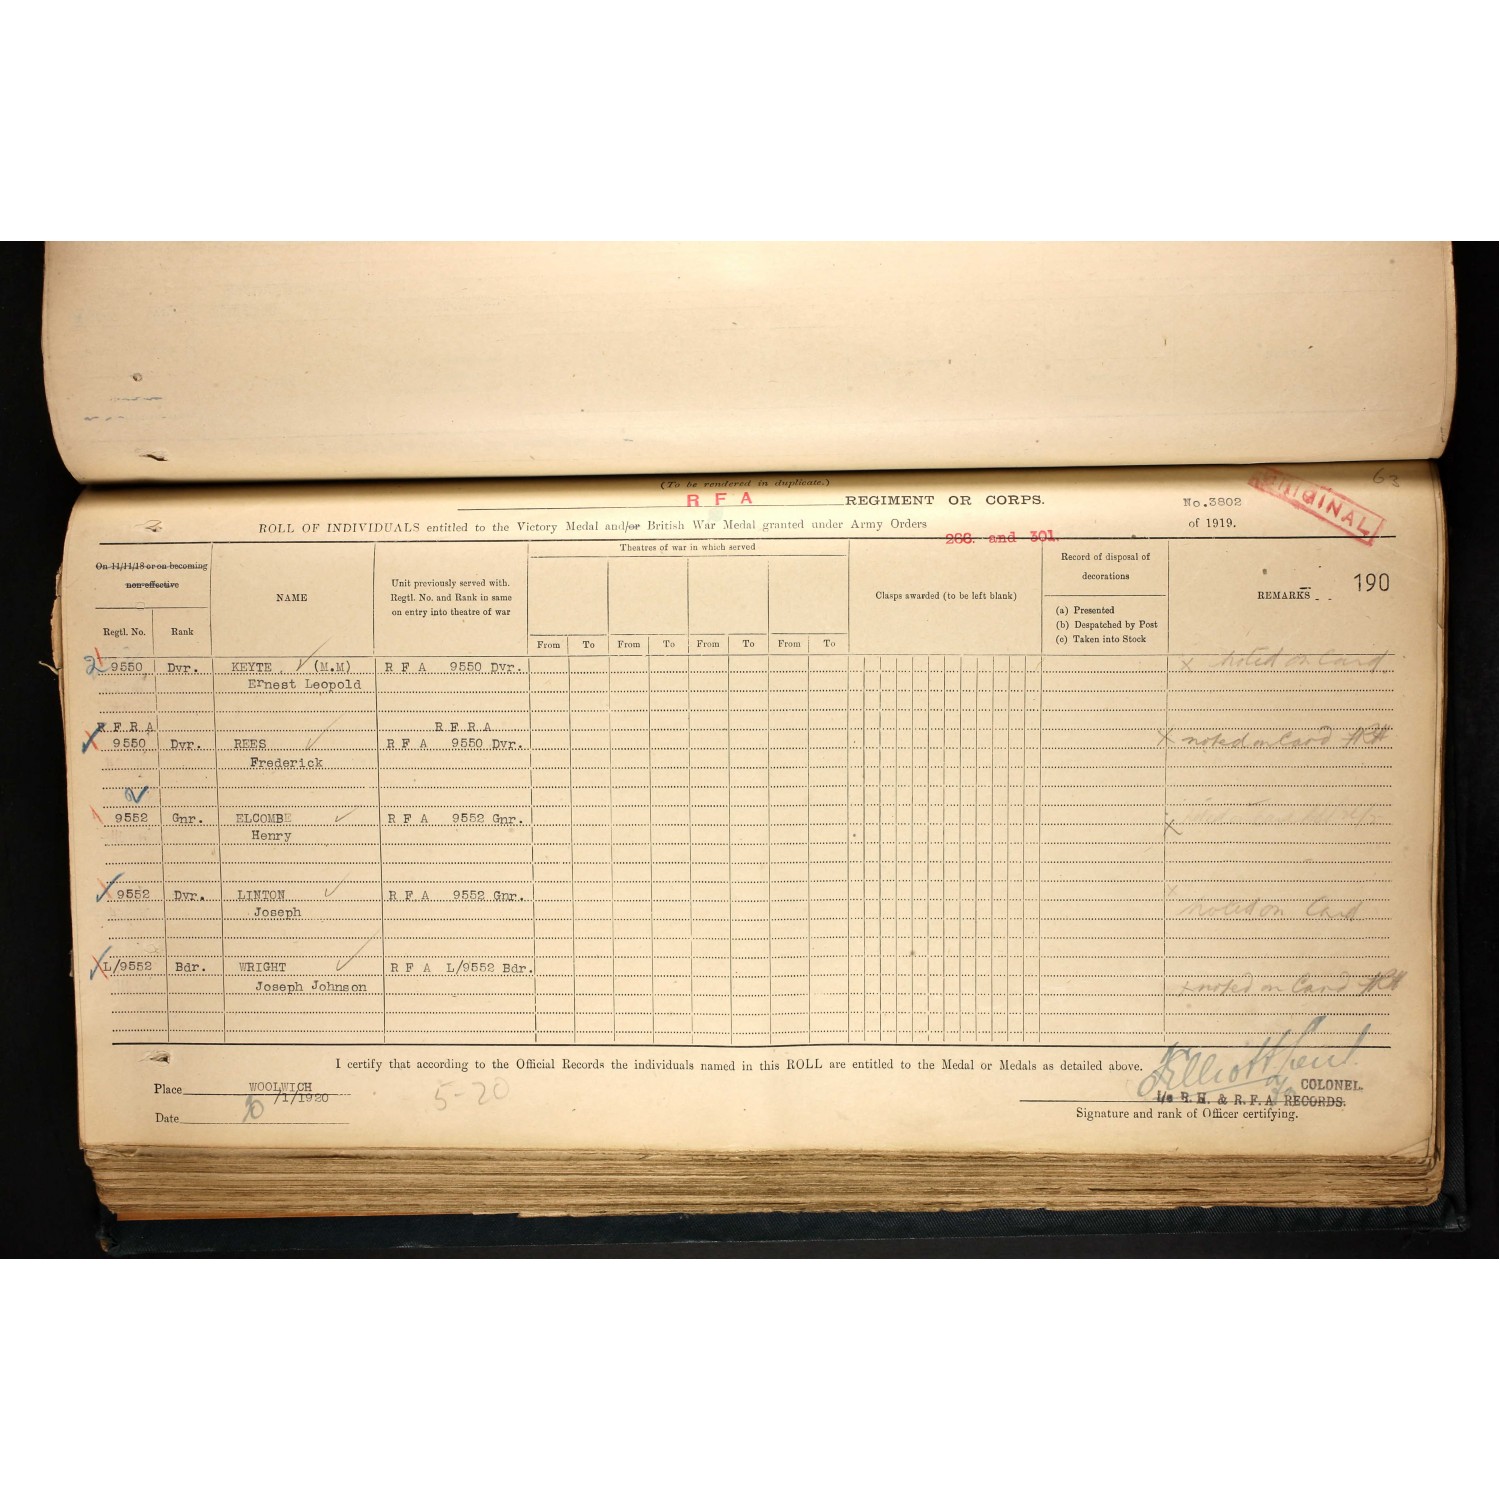 (To be rendered in duplicate.)
63
R F A REGIMENT OR CORPS.
No. 3802
ORIGINAL
ROLL OF INDIVIDUALS entitled to the Victory Medal and/or British War Medal granted under Army Orders
266. and 301.
of 1919.
On 11/11/18 or on becoming non-effective
Regtl. No.
Rank
NAME
Unit previously served with. Regtl. No. and Rank in same on entry into theatre of war
Theatres of war in which served
From To From To From To From To
Clasps awarded (to be left blank)
Record of disposal of decorations
(a) Presented
(b) Despatched by Post
(c) Taken into Stock
REMARKS
190
2 9550 Dvr. KEYTE (M.M) R F A 9550 Dvr. x noted on Card
Ernest Leopold
R F R A R F R A
9550 Dvr. REES R F A 9550 Dvr. x noted on Card
Frederick
2
9552 Gnr. ELCOMBE R F A 9552 Gnr.
Henry
9552 Dvr. LINTON R F A 9552 Gnr.
Joseph noted on Card
L/9552 Bdr. WRIGHT R F A L/9552 Bdr.
Joseph Johnson x noted on Card
I certify that according to the Official Records the individuals named in this ROLL are entitled to the Medal or Medals as detailed above.
Place WOOLWICH
/1/1920
5-20
Date
COLONEL.
I/c R.H. & R.F.A RECORDS.
Signature and rank of Officer certifying.